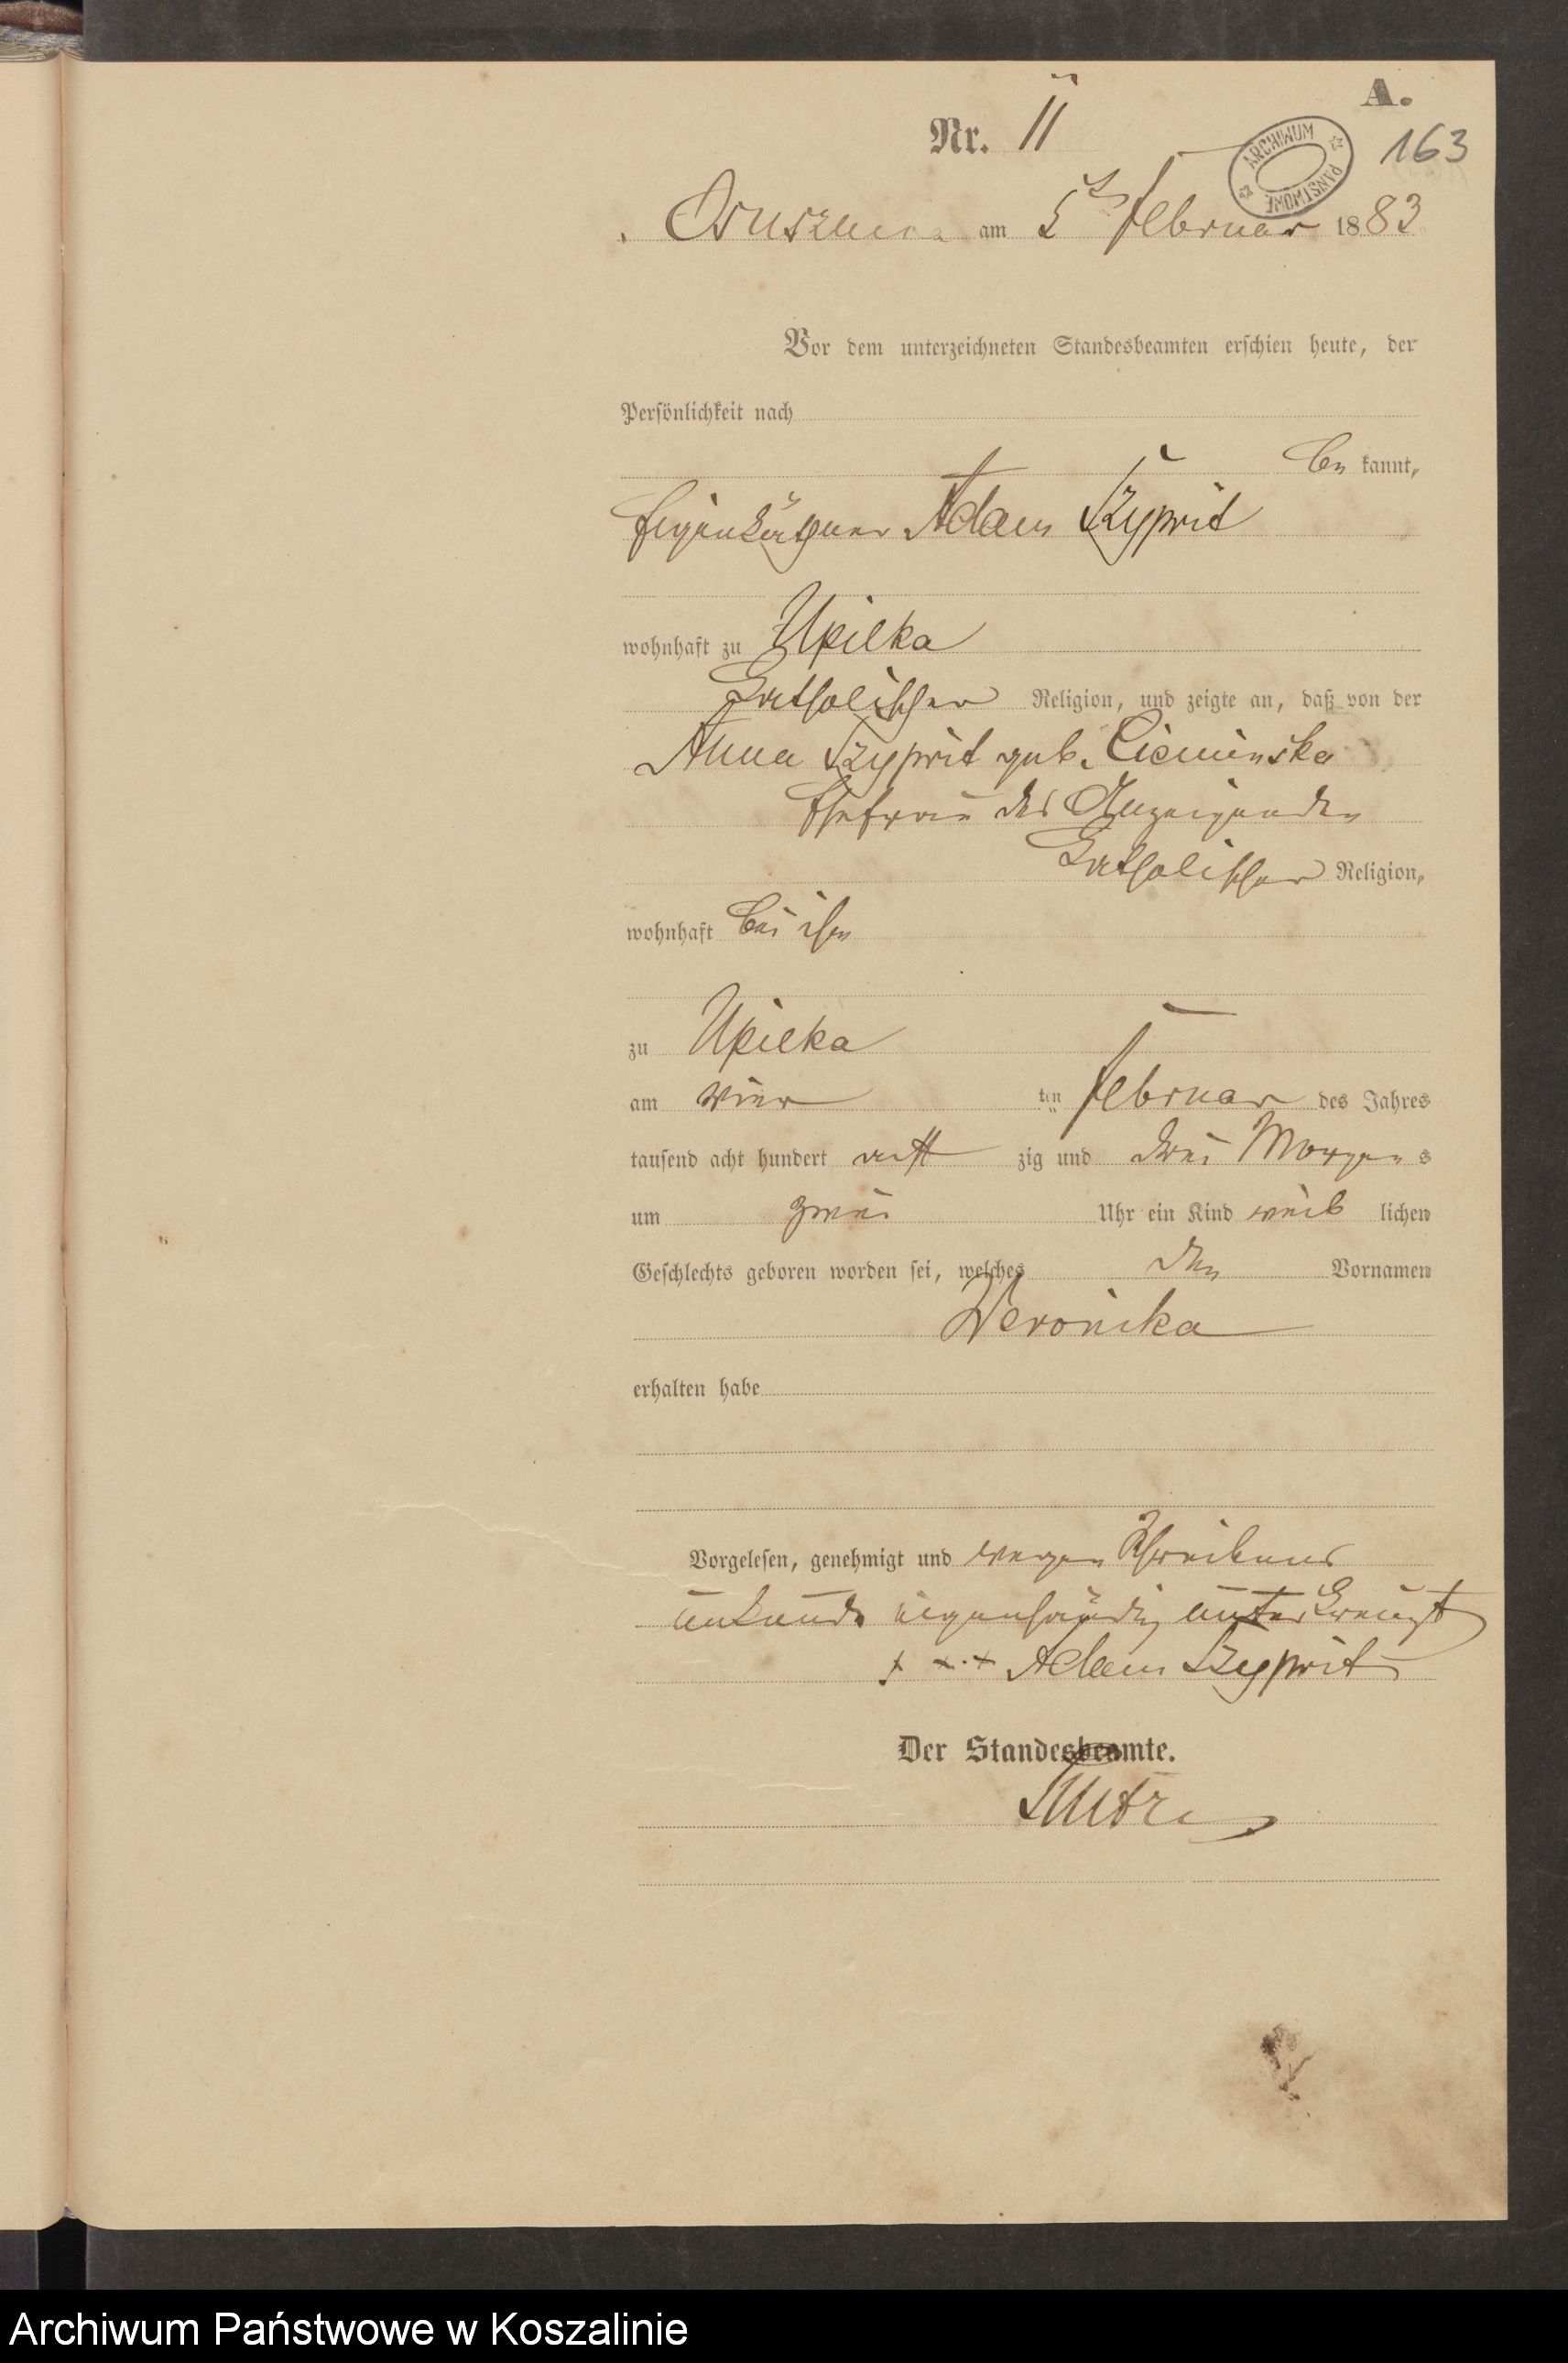 A.
Nr. 11
163
ARCHIWUM PAŃSTWOWE
am 5ten Februar 1883
Vor dem unterzeichneten Standesbeamten erschien heute, der
Persönlichkeit nach
be kannt,
Eigenkäthner Adam Szyprit
wohnhaft zu Upilka
katholischer Religion, und zeigte an, daß von der
Anna Szyprit geb. Cieminska
Ehefrau des Anzeigenden
katholischer Religion,
wohnhaft bei ihm
zu Upilka
am vier ten Februar des Jahres
tausend acht hundert acht zig und drei Morgens
um zwei Uhr ein Kind weib lichen
Geschlechts geboren worden sei, welches den Vornamen
Veronika
erhalten habe
Vorgelesen, genehmigt und wegen Schreibens
unkunde eigenhändig unterkreuzt
+ + + Adam Szyprit
Der Standesbeamte.
Archiwum Państwowe w Koszalinie